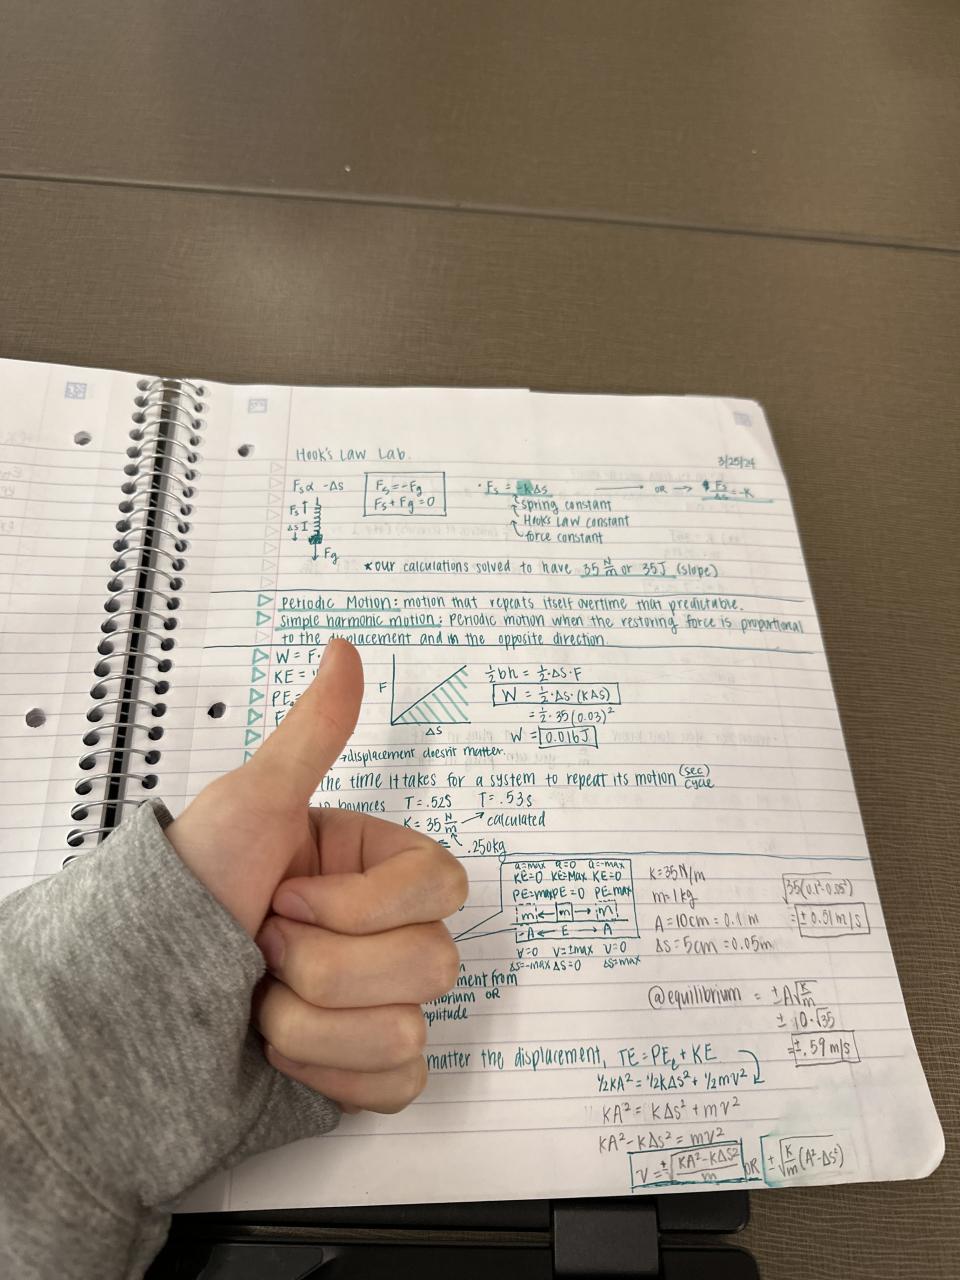 Hook's Law Lab.
3/25/24
Fs∝ -Δs
Fs = -Fg
Fs + Fg = 0
· Fs = -kΔs → OR → Fs/Δs = -K
spring constant
Hooks Law constant
force constant
Fs↑
Δs
Fg
*our calculations solved to have 35 N/m or 35J (slope)
Periodic Motion: motion that repeats itself overtime that predictable.
Simple harmonic motion: Periodic motion when the restoring force is proportional
to the displacement and in the opposite direction.
W = F·
KE =
PE
F
Δs
½bh = ½·Δs·F
W = ½·Δs·(kΔs)
= ½·35(0.03)²
W = 0.016J
→displacement doesn't matter.
the time it takes for a system to repeat its motion (sec/cycle)
bounces T=.52s T=.53s
K = 35 N/m → calculated
.250kg
a=max a=0 a=-max
KE=0 KE=Max KE=0
PE=max PE=0 PE=max
m ← m → m
-A ← E → A
V=0 V=±max V=0
Δs=-max Δs=0 Δs=max
k=35N/m
m=1kg
A=10cm=0.1m
Δs=5cm=0.05m
√35(0.1²-0.05²)
= ±0.51m/s
ment from
OR
amplitude
@equilibrium = ±A√K/m
± 10·√35
=±.59m/s
matter the displacement, TE = PE + KE
½KA² = ½KΔs² + ½mv²
KA² = KΔs² + mv²
KA² - KΔs² = mv²
V = ±√KA²-KΔs²/m OR ±√K/m(A²-Δs²)